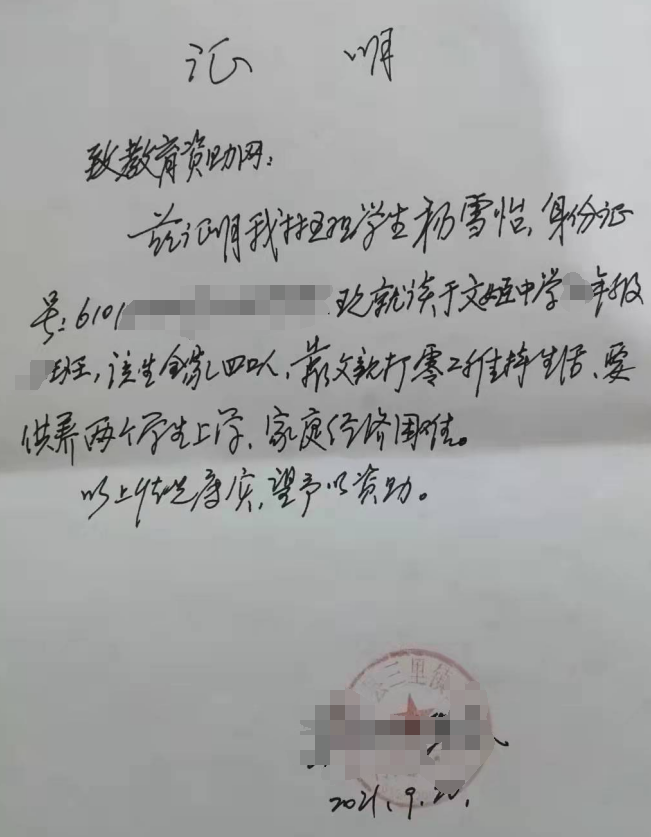 证 明
致教育资助网:
兹证明我村组学生杨雪怡,身份证
号:6101 现就读于文姬中学 年级
班,该生全家四口人,靠父亲打零工维持生活、要
供养两个学生上学,家庭经济困难。
以上情况属实,望予以资助。
三里镇
2021.9.20.